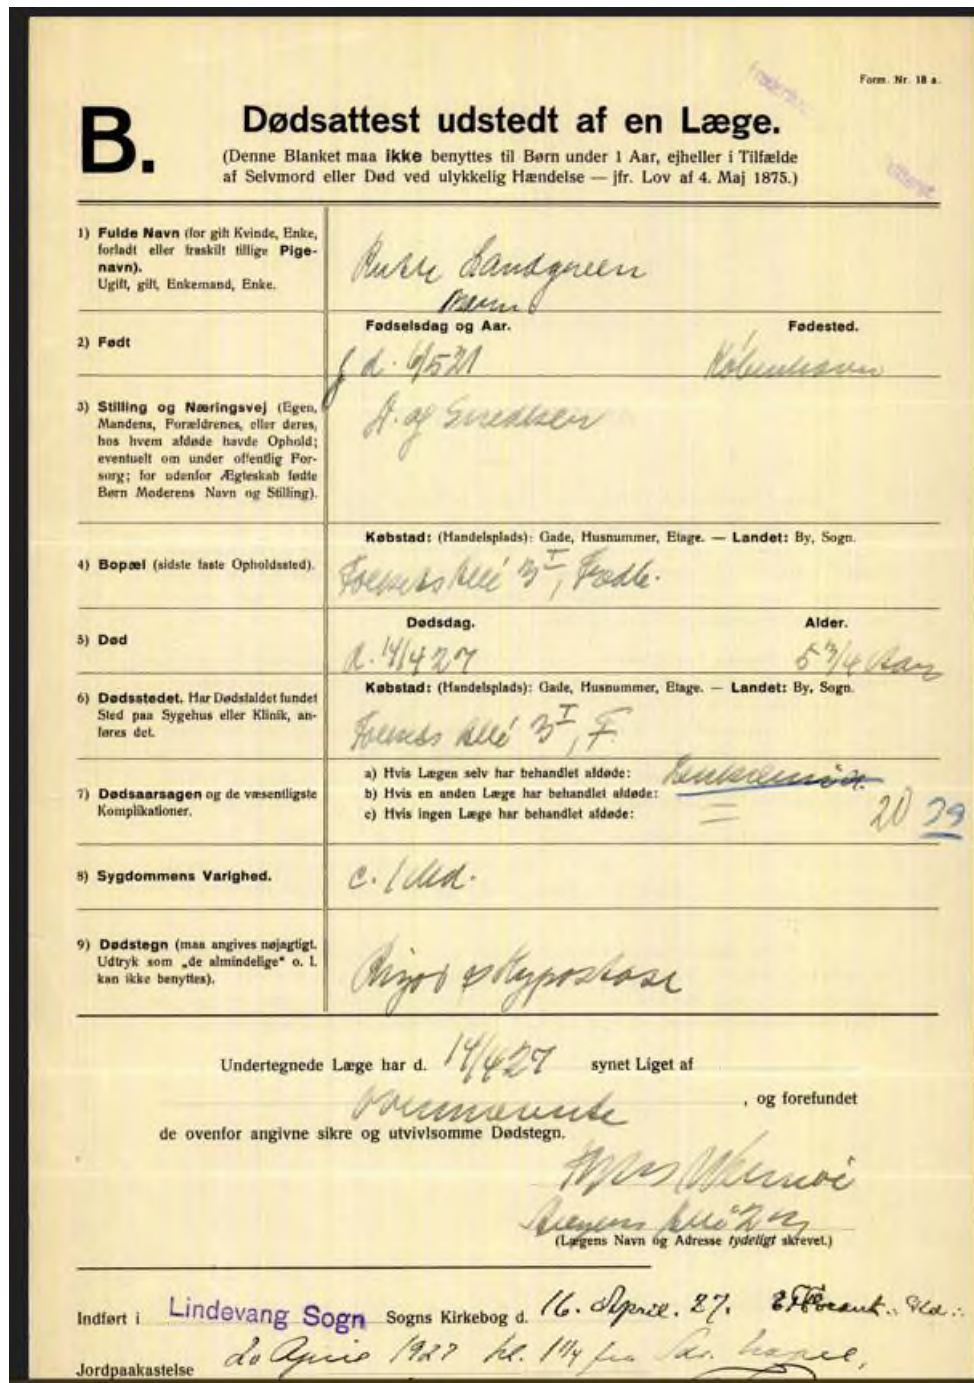 Form. Nr. 18 a.
B.
Dødsattest udstedt af en Læge.
(Denne Blanket maa ikke benyttes til Børn under 1 Aar, ejheller i Tilfælde
af Selvmord eller Død ved ulykkelig Hændelse — jfr. Lov af 4. Maj 1875.)
1) Fulde Navn (for gift Kvinde, Enke,
forladt eller fraskilt tillige Pige-
navn).
Ugift, gift, Enkemand, Enke.
Landgreen
Barn
2) Født
Fødselsdag og Aar.
Fødested.
f d. 6/5 21
København
3) Stilling og Næringsvej (Egen,
Mandens, Forældrenes, eller deres,
hos hvem afdøde havde Ophold;
eventuelt om under offentlig For-
sorg; for udenfor Ægteskab fødte
Børn Moderens Navn og Stilling).
D. af
4) Bopæl (sidste faste Opholdssted).
Købstad: (Handelsplads): Gade, Husnummer, Etage. — Landet: By, Sogn.
Allé 3 I, Fredb.
5) Død
Dødsdag.
Alder.
d. 14/4 27
5 3/4 Aar
6) Dødsstedet. Har Dødsfaldet fundet
Sted paa Sygehus eller Klinik, an-
føres det.
Købstad: (Handelsplads): Gade, Husnummer, Etage. — Landet: By, Sogn.
Allé 3 I, F.
7) Dødsaarsagen og de væsentligste
Komplikationer.
a) Hvis Lægen selv har behandlet afdøde:
b) Hvis en anden Læge har behandlet afdøde:
c) Hvis ingen Læge har behandlet afdøde:
8) Sygdommens Varighed.
c. 1 Md.
9) Dødstegn (maa angives nøjagtigt.
Udtryk som „de almindelige“ o. l.
kan ikke benyttes).
Rigor & Hypostase
Undertegnede Læge har d. 14/4 27 synet Liget af
ovennævnte, og forefundet
de ovenfor angivne sikre og utvivlsomme Dødstegn.
Allé
(Lægens Navn og Adresse tydeligt skrevet.)
Indført i Lindevang Sogn Sogns Kirkebog d. 16. April. 27.
Jordpaakastelse 20 April 1927 kl. 1 1/4 fra Kapel,